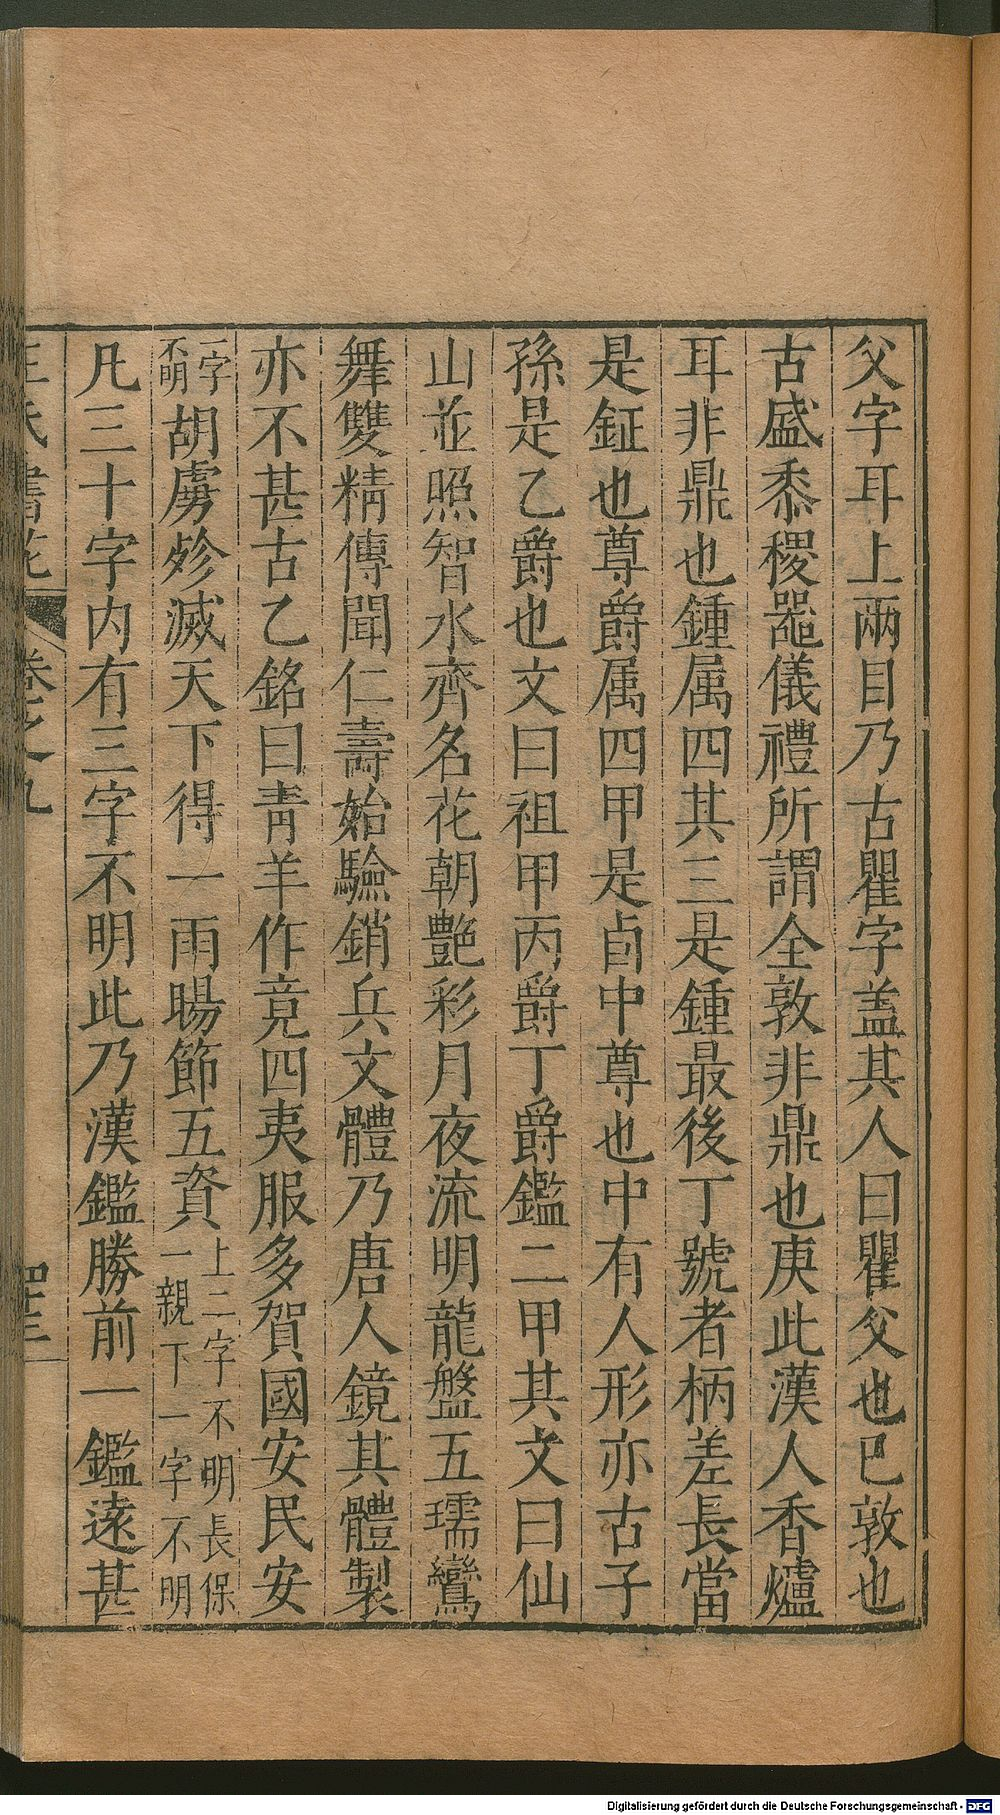 父字耳上兩目乃古瞿字盖其人曰瞿父也巳敦也
古盛黍稷噐儀禮所謂全敦非鼎也庚此漢人香爐
耳非鼎也鍾属四其三是鍾最後丁號者柄差長當
是鉦也尊爵属四甲是卣中尊也中有人形亦古子
孫是乙爵也文曰祖甲丙爵丁爵鑑二甲其文曰仙
山並照智水齊名花朝艶彩月夜流明龍盤五瑞鸞
舞雙精傳聞仁壽始驗銷兵文體乃唐人鏡其體製
亦不甚古乙銘曰青羊作竟四夷服多賀國安民安
一字不明胡虜殄滅天下得一雨暘節五資上二字不明長保一親下一字不明
凡三十字内有三字不明此乃漢鑑勝前一鑑遠甚
王氏書苑 卷之九
Digitalisierung gefördert durch die Deutsche Forschungsgemeinschaft - DFG